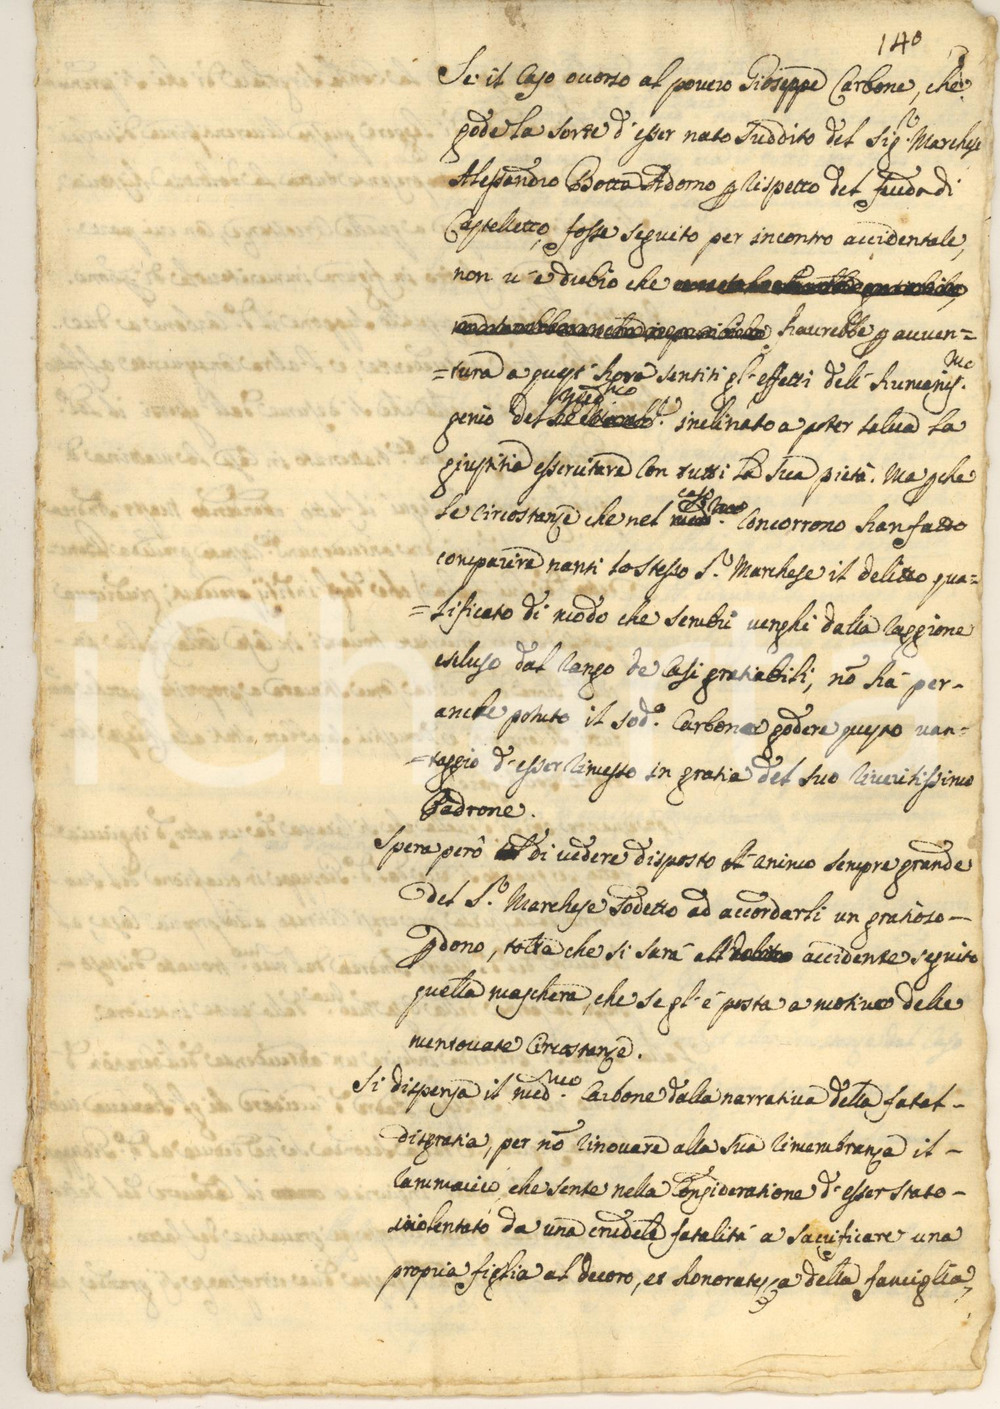 140
Se il Caso ocorso al povero Giuseppe Carbone, che
gode la sorte d'esser nato Suddito del Sig.r Marchese
Alessandro Botta Adorno p rispetto del feudo di
Castelletto, fosse seguito per incontro accidentale,
non v'è dubio che
havrebbe p avven=
=tura a quest'hora sentiti gl'effetti dell'humaniss.mo
genio del med.mo inclinato a poter salva la
giustitia essercitare con tutti la sua pietà. Ma p che
le circostanze che nel caso concorrono han fatto
comparire nanti lo stesso S.r Marchese il delitto qua=
=lificato di modo che sembri venghi dalla raggione
escluso dal rango de casi gratiabili, nō hà per-
anche potuto il sod.o Carbone godere questo van=
=taggio d'esser rimesso in gratia del suo riveritissimo
Padrone.
Spera però di vedere disposto l'animo sempre grande
del S.r Marchese sodetto ad accordarli un gratioso
pdono, tolta che si sarà all' accidente seguito
quella maschera, che se gl'è posta a motivo delle
mentovate circostanze.
Si dispensa il med.mo Carbone dalla narrativa della fatal
disgratia, per nō rinovare alla sua rimembranza il
ramarico, che sente nella consideratione d'esser stato
violentato da una crudele fatalità a sacrificare una
propria figlia al decoro, et honoratezza della famiglia,